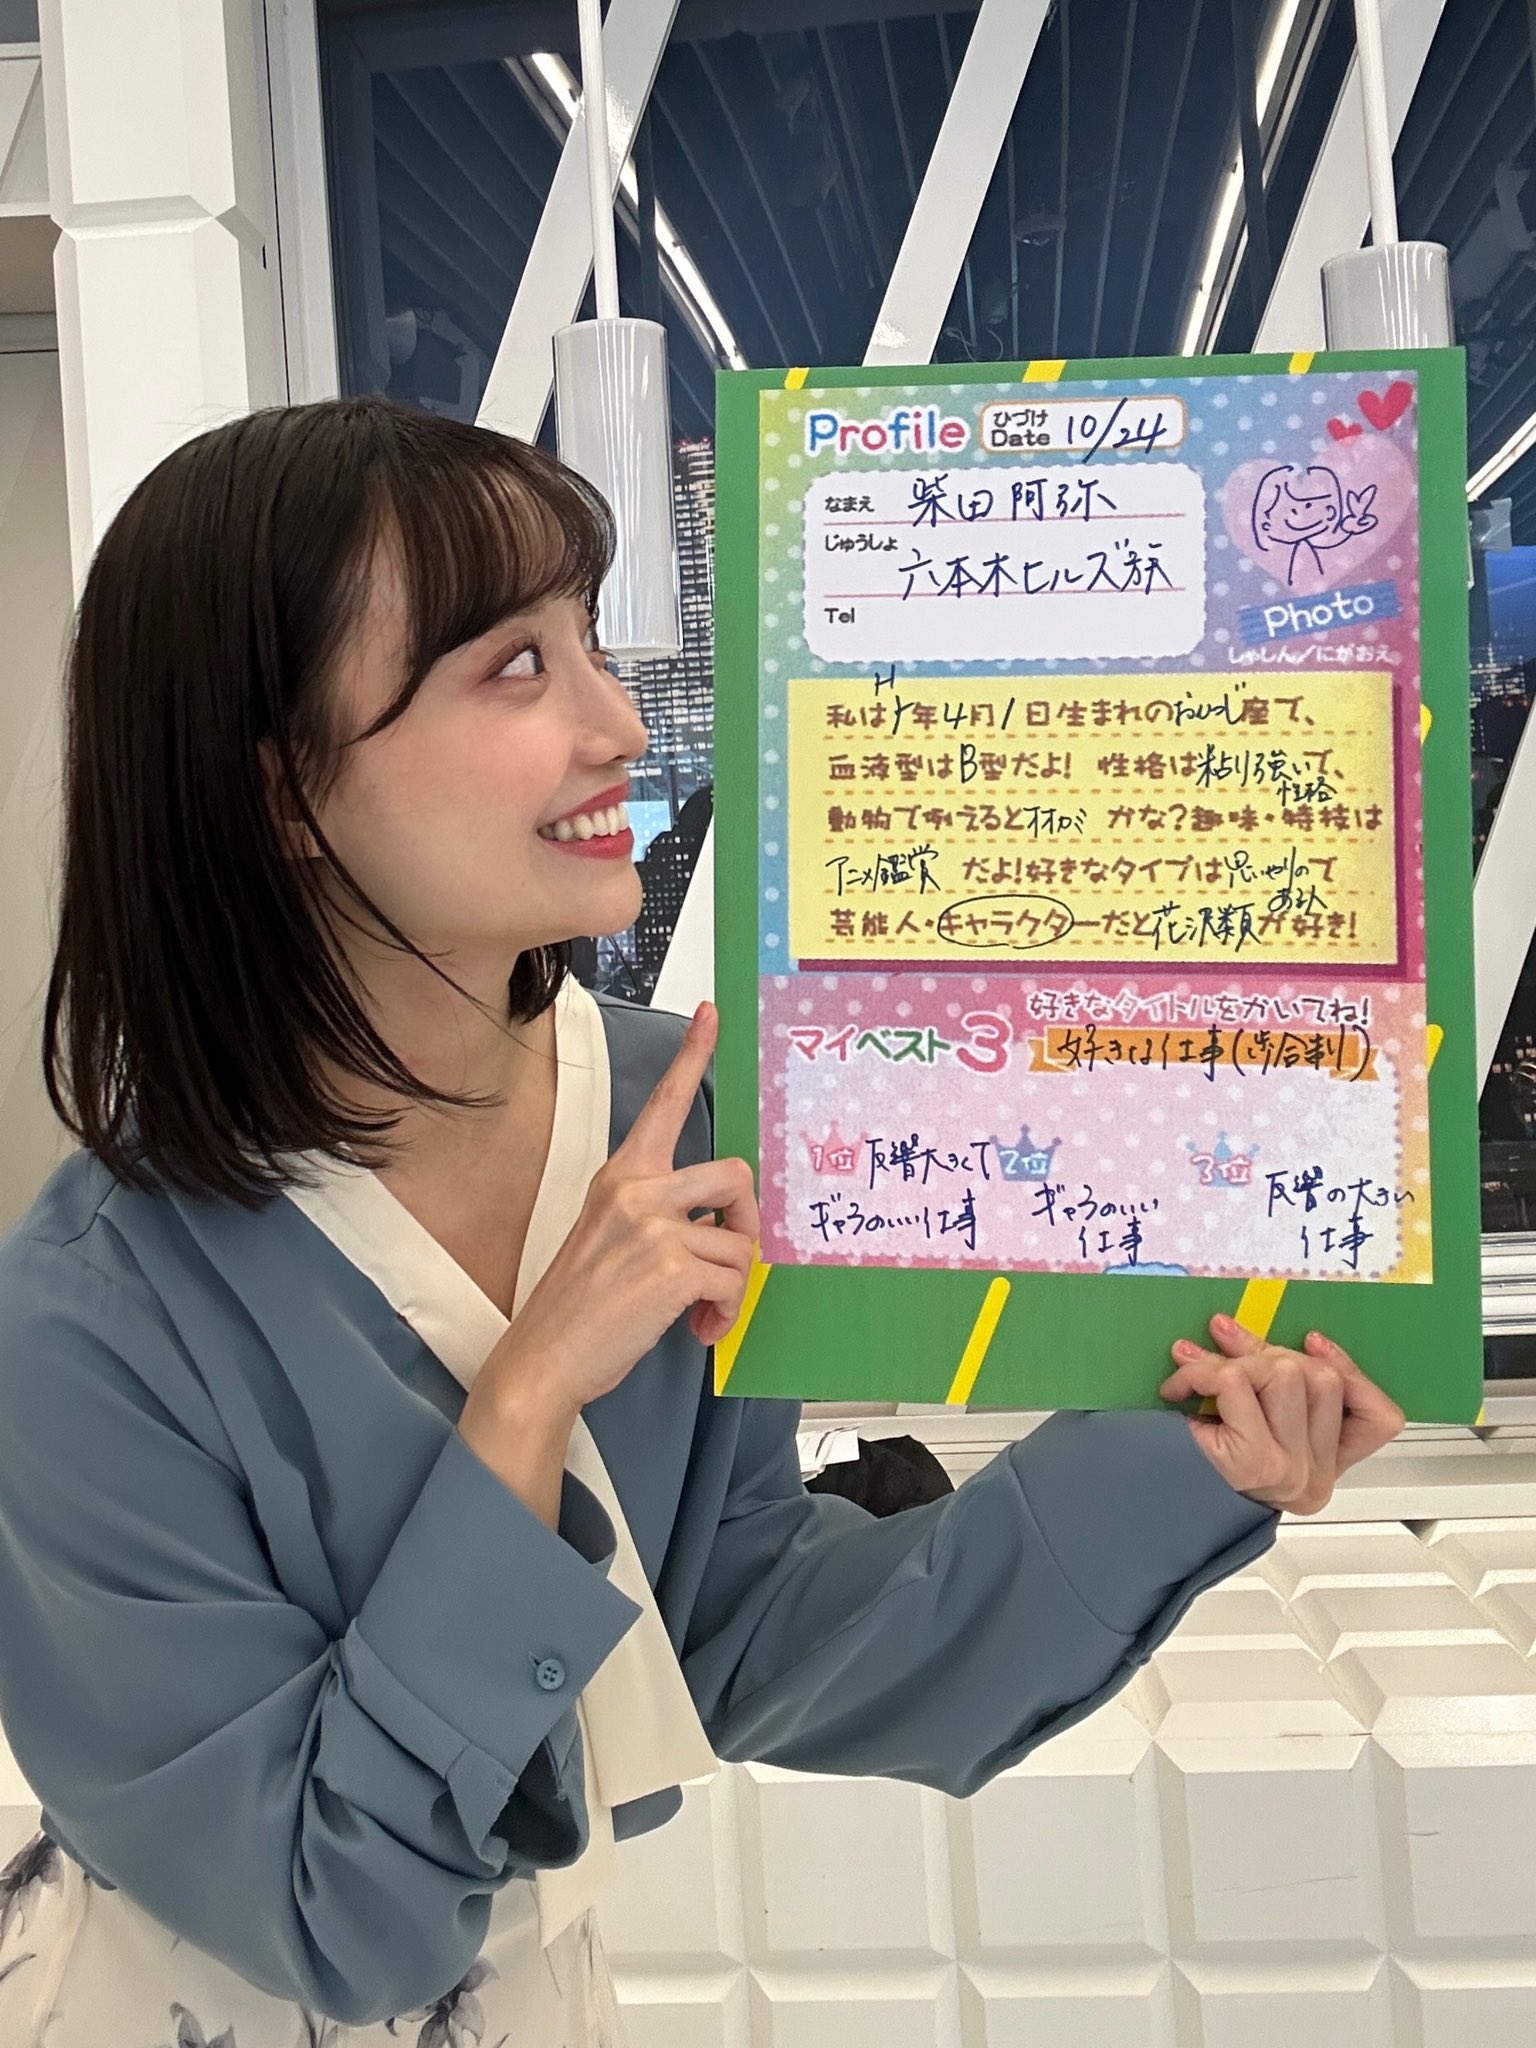 Profile ひづけ Date 10/24
なまえ 柴田阿弥
じゅうしょ 六本木ヒルズ族
Tel
Photo
しゃしん/にがおえ
私はH5年4月1日生まれのおひつじ座で、
血液型はB型だよ! 性格は粘り強い性格で、
動物で例えるとオオカミかな?趣味・特技は
アニメ鑑賞だよ!好きなタイプは思いやりのある人で
芸能人・キャラクターだと花沢類が好き!
マイベスト3 好きなタイトルをかいてね!
好きな仕事(歩合制)
1位 反響大きくてギャラのいい仕事
2位 ギャラのいい仕事
3位 反響の大きい仕事